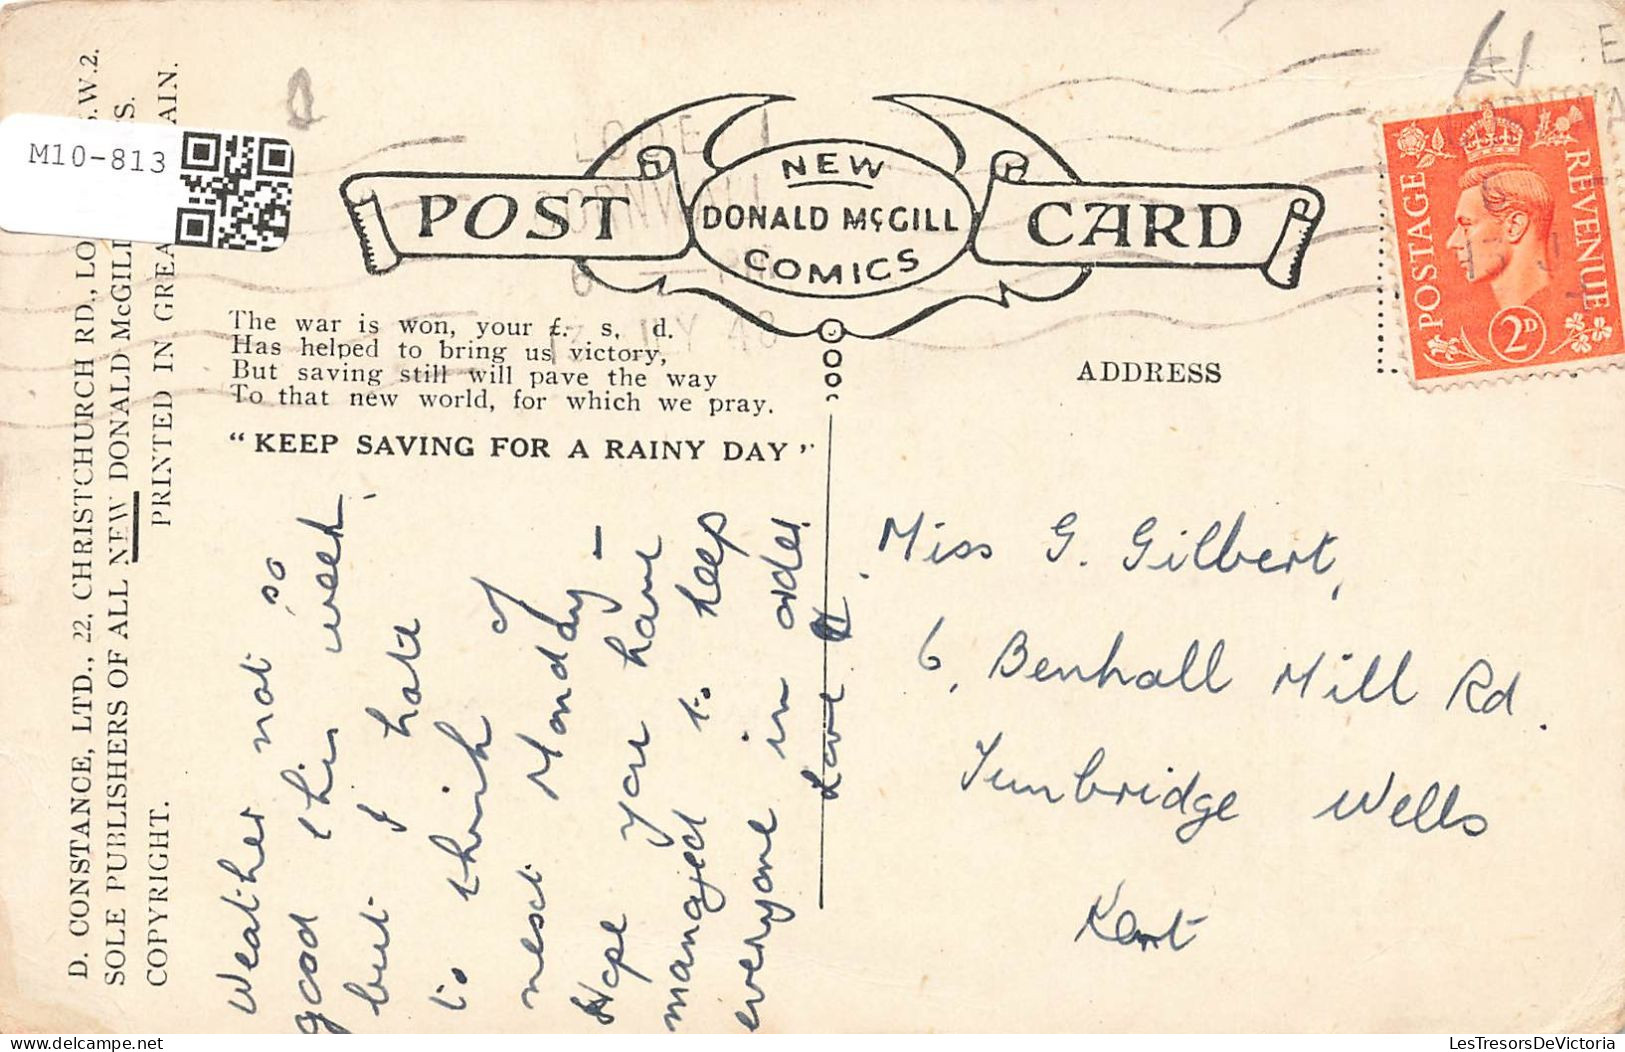 M10-813
D. CONSTANCE, LTD., 22, CHRISTCHURCH RD., LO S.W.2.
SOLE PUBLISHERS OF ALL NEW DONALD McGILL S.
COPYRIGHT. PRINTED IN GREA AIN.
POST CARD
NEW
DONALD McGILL
COMICS
The war is won, your £. s. d.
Has helped to bring us victory,
But saving still will pave the way
To that new world, for which we pray.
"KEEP SAVING FOR A RAINY DAY"
ADDRESS
POSTAGE
REVENUE
2D
CORNWALL
48
Weather not so
good this week.
but I hate
to think of
next Monday –
Hope you have
managed to keep
everyone in order
Love
Miss G. Gilbert,
6, Benhall Mill Rd.
Tunbridge Wells
Kent
delcampe.net
LesTresorsDeVictoria